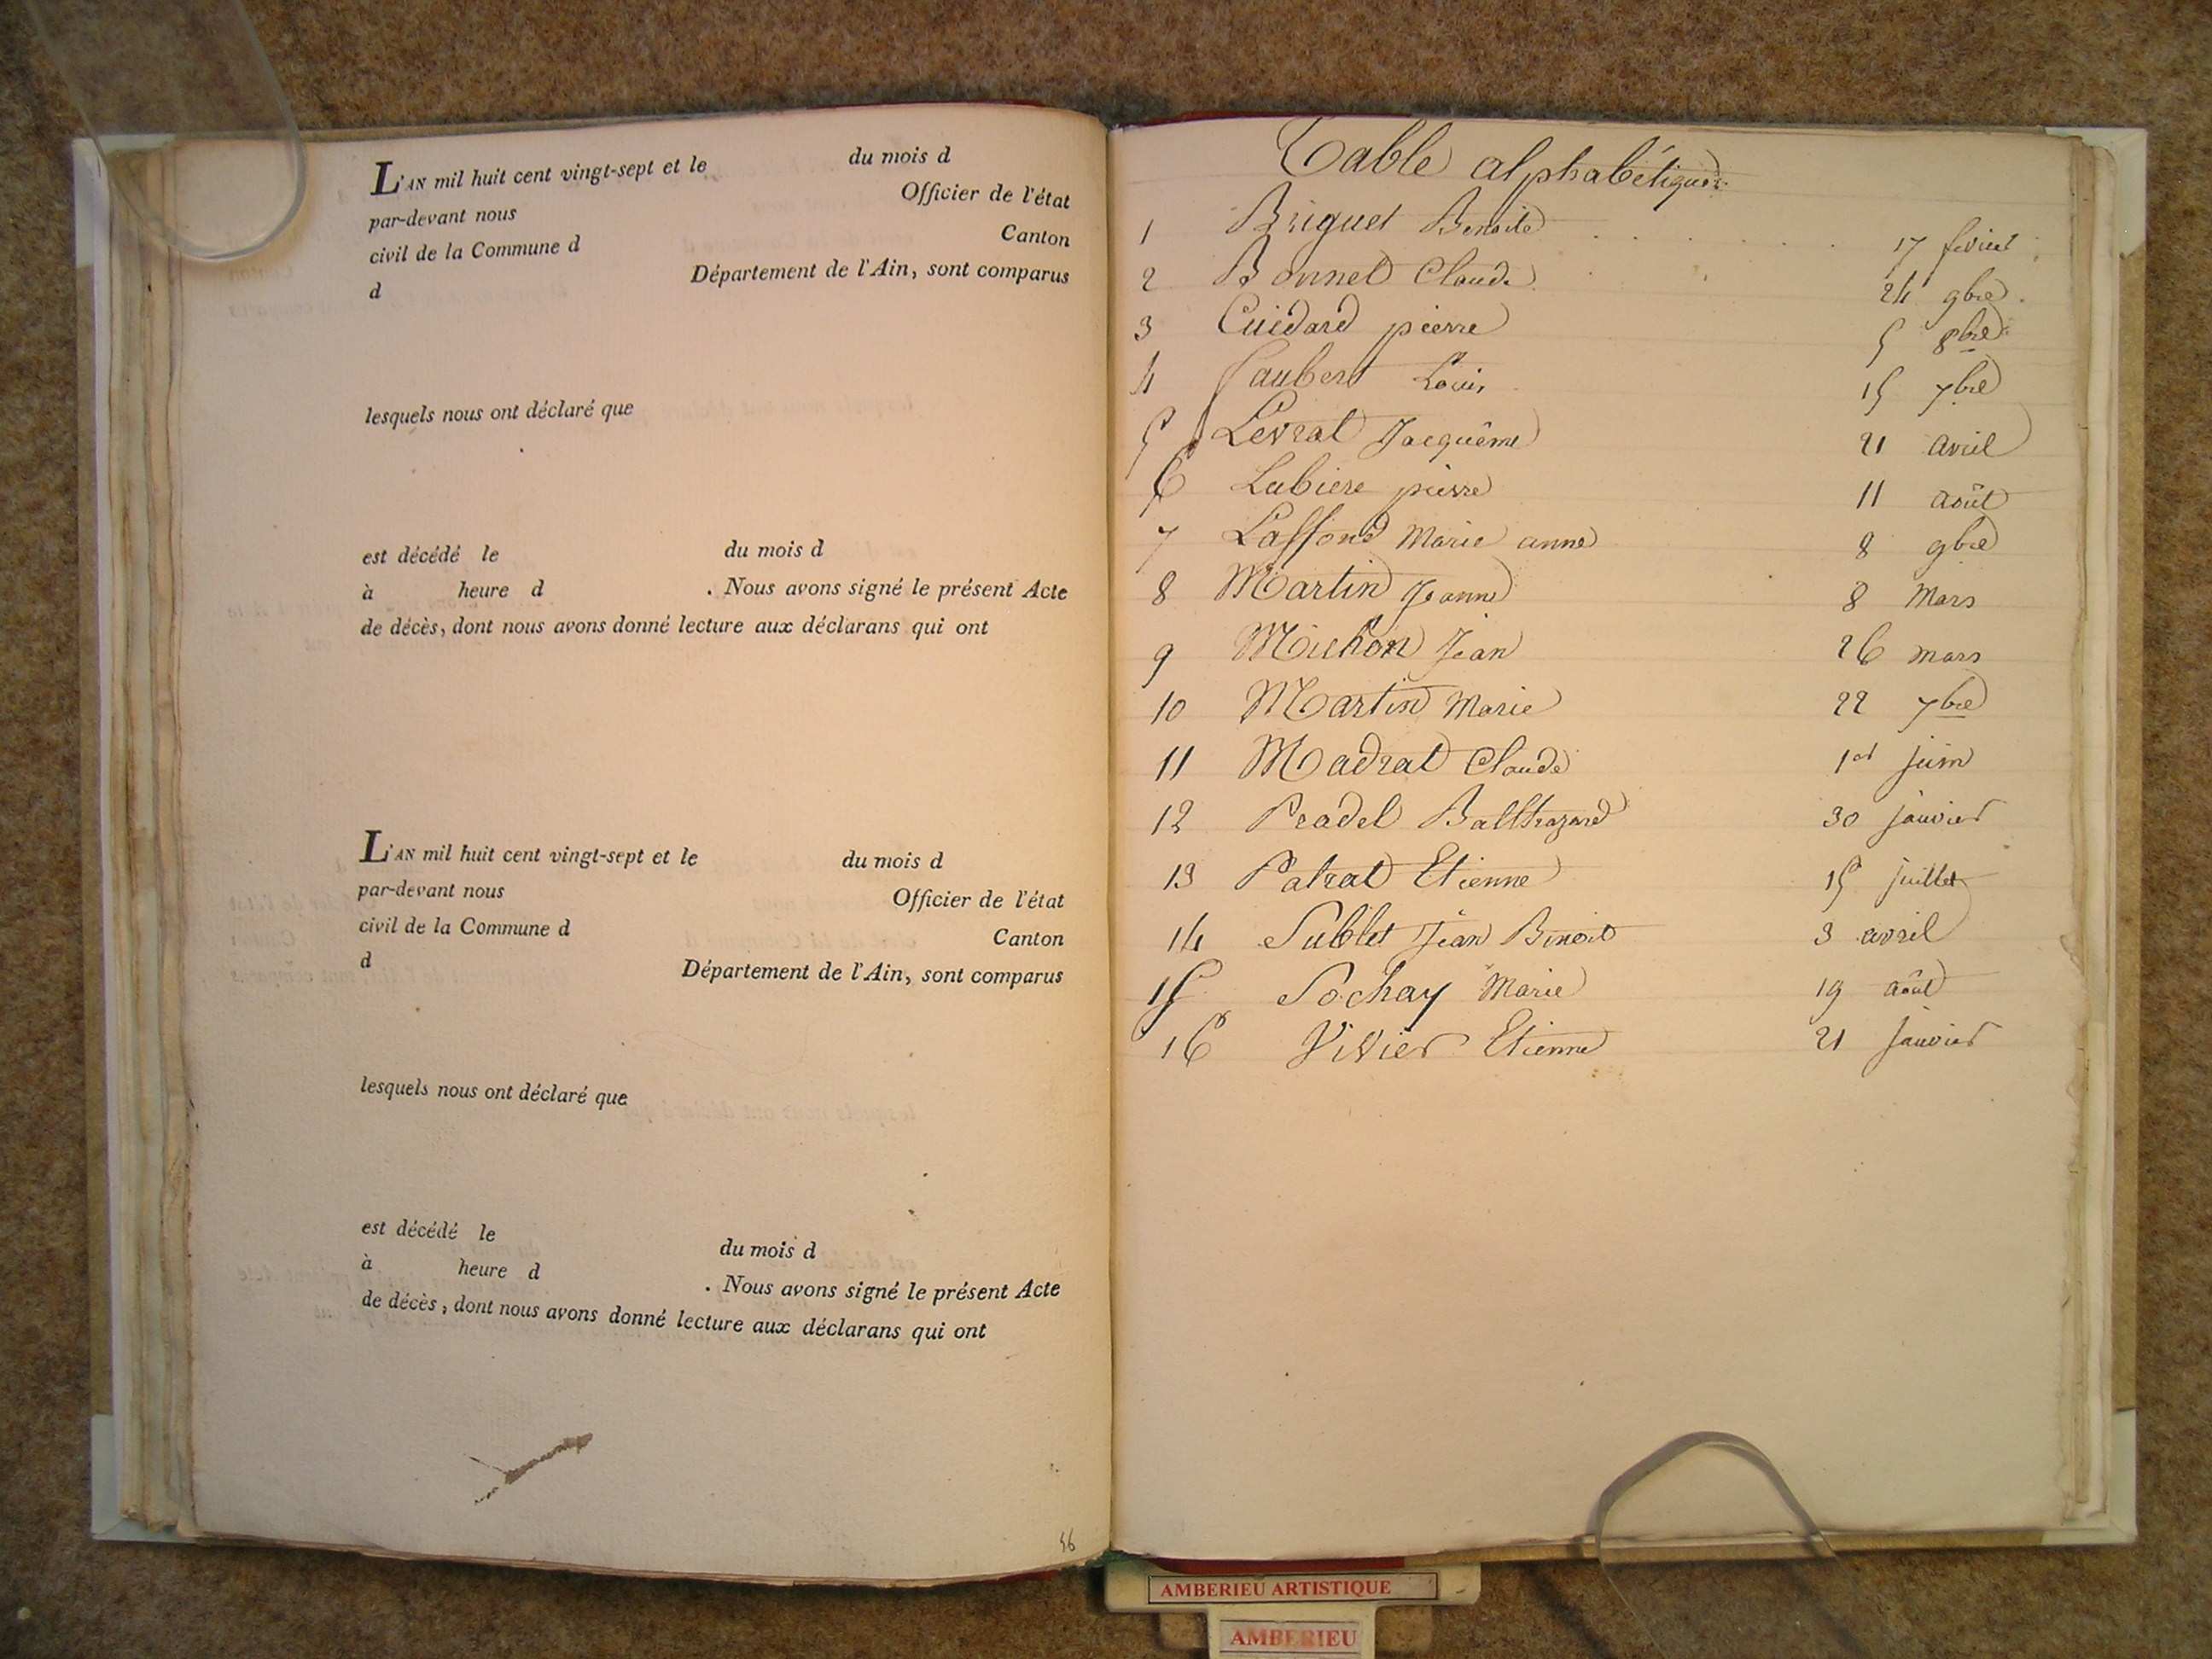 L'AN mil huit cent vingt-sept et le du mois d
par-devant nous Officier de l'état
civil de la Commune d Canton
d Département de l'Ain, sont comparus
lesquels nous ont déclaré que
est décédé le du mois d
à heure d . Nous avons signé le présent Acte
de décès, dont nous avons donné lecture aux déclarans qui ont
L'AN mil huit cent vingt-sept et le du mois d
par-devant nous Officier de l'état
civil de la Commune d Canton
d Département de l'Ain, sont comparus
lesquels nous ont déclaré que
est décédé le du mois d
à heure d . Nous avons signé le présent Acte
de décès, dont nous avons donné lecture aux déclarans qui ont
56
Table alphabétique
1 Briguet Benoite 17 février
2 Bonnet Claude 24 9bre
3 Cuidard pierre 5 8bre
4 Jaubert Louis 15 7bre
5 Levrat Jacquême 21 avril
6 Labiere pierre 11 août
7 Laffond Marie anne 8 9bre
8 Martin Jeanne 8 Mars
9 Michon Jean 26 mars
10 Martin Marie 22 7bre
11 Madrat Claude 1er juin
12 Pradel Balthazard 30 janvier
13 Patrat Etienne 15 juillet
14 Sublet Jean Benoit 3 avril
15 Sochay Marie 19 août
16 Vivier Etienne 21 Janvier
AMBERIEU ARTISTIQUE
AMBERIEU